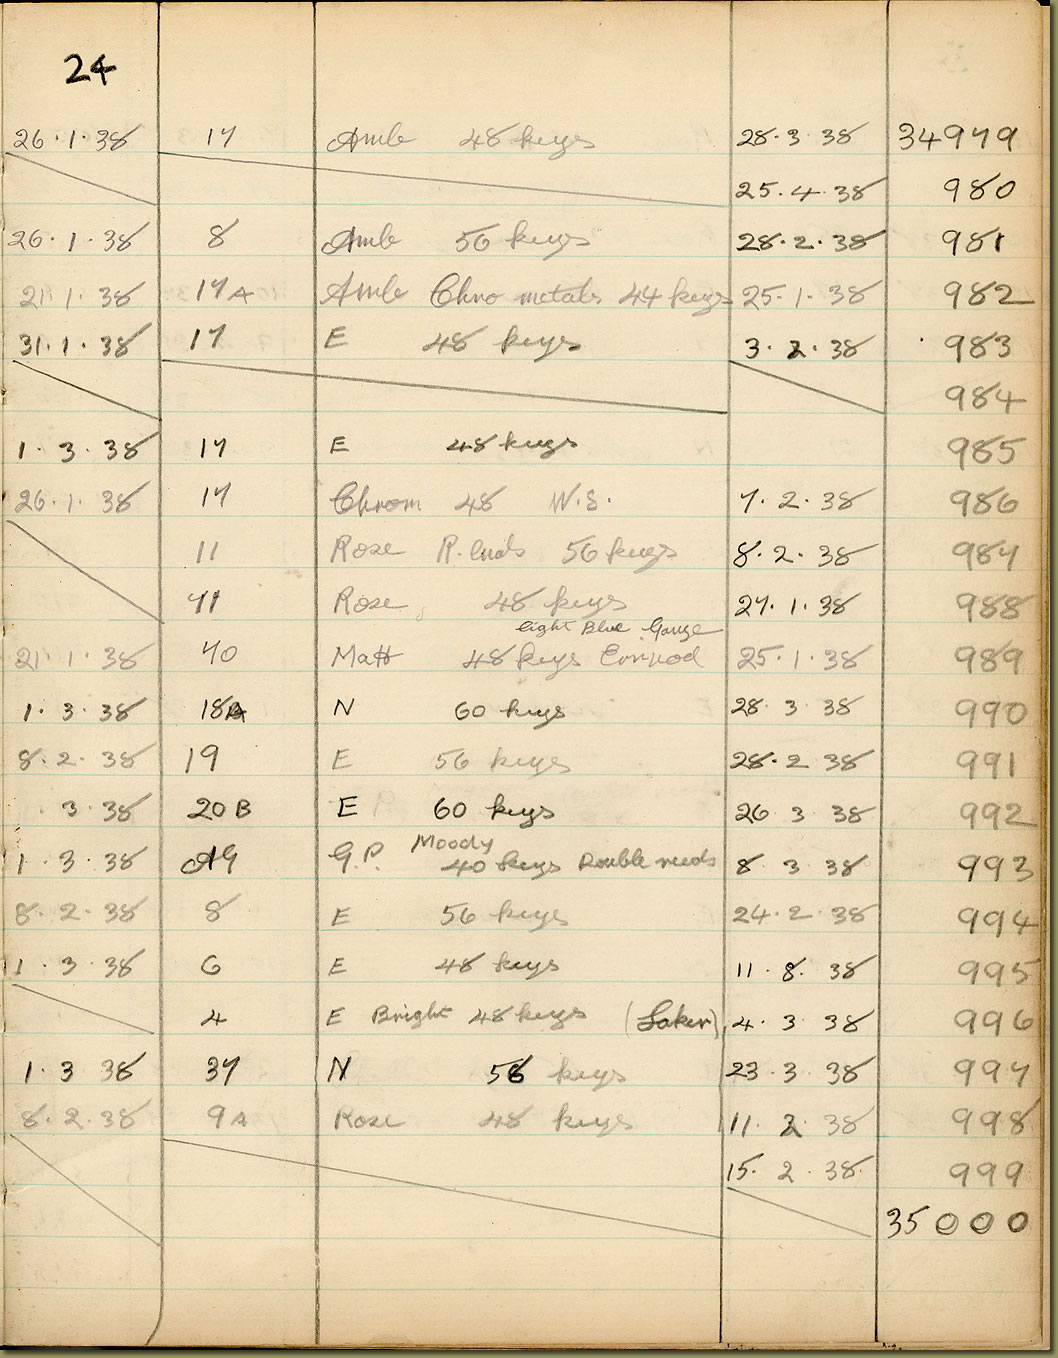 24
26·1·38 17 Amb 48 keys 28·3·38 34979
25·4·38 980
26·1·38 8 Amb 56 keys 28·2·38 981
21·1·38 17A Amb Chro metals 44 keys 25·1·38 982
31·1·38 17 E 48 keys 3·2·38 983
984
1·3·38 17 E 48 keys 985
26·1·38 17 Chrom 48 W.S. 7·2·38 986
11 Rose R. Ends 56 keys 8·2·38 987
11 Rose 48 keys 27·1·38 988
light Blue Gauze
21·1·38 40 Matt 48 keys 25·1·38 989
1·3·38 18 N 60 keys 28·3·38 990
8·2·38 19 E 56 keys 28·2·38 991
3·38 20B E 60 keys 26 3 38 992
Moody
1·3·38 G.P. 40 keys Double reeds 8 3 38 993
8·2·38 8 E 56 keys 24·2·38 994
1·3·38 6 E 48 keys 11·8·38 995
4 E Bright 48 keys (Laker) 4·3·38 996
1·3 38 37 N 56 keys 23·3·38 997
8·2·38 9A Rose 48 keys 11·2·38 998
15·2·38· 999
35000